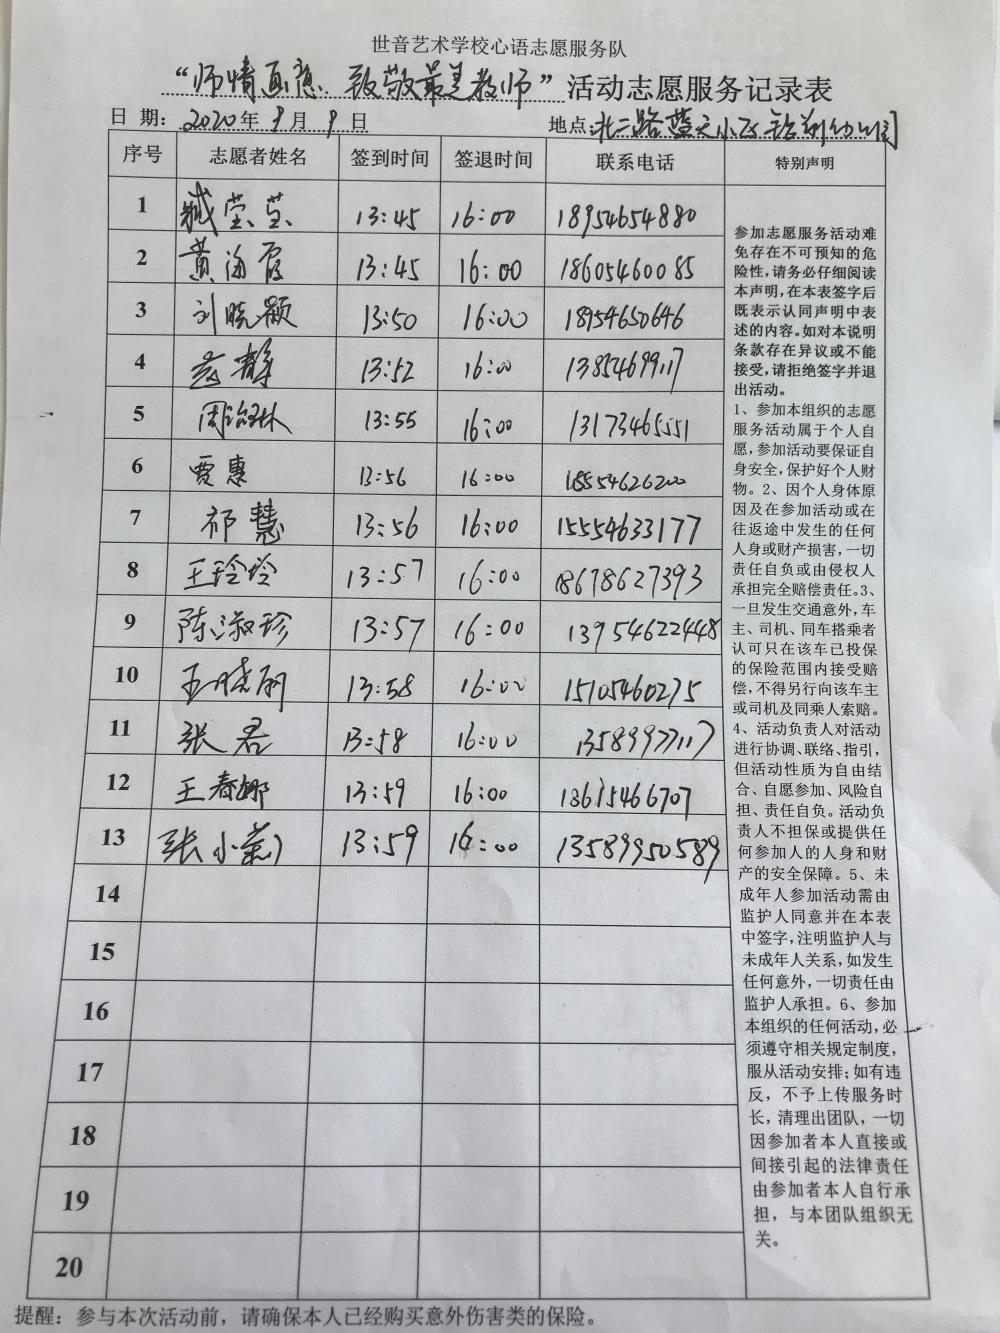 世音艺术学校心语志愿服务队
“师情画意、致敬最美教师”活动志愿服务记录表
日 期：2020年9月9日 地点：北二路蓝天小区
序号 志愿者姓名 签到时间 签退时间 联系电话 特别声明
1 臧莹莹 13:45 16:00 18954654880
2 黄海霞 13:45 16:00 18605460085
3 刘晓颖 13:50 16:00 18954650646
4 静 13:52 16:00 13854699117
5 周 林 13:55 16:00 13173465551
6 贾惠 13:56 16:00 18554626200
7 祁慧 13:56 16:00 15554633177
8 王玲玲 13:57 16:00 18678627393
9 陈淑珍 13:57 16:00 13954622448
10 王晓丽 13:58 16:00 15105460275
11 张君 13:58 16:00 13589977117
12 王春娜 13:59 16:00 13615466707
13 张小菊 13:59 16:00 13589950589
14
15
16
17
18
19
20
参加志愿服务活动难
免存在不可预知的危
险性,请务必仔细阅读
本声明,在本表签字后
既表示认同声明中表
述的内容。如对本说明
条款存在异议或不能
接受,请拒绝签字并退
出活动。
1、参加本组织的志愿
服务活动属于个人自
愿,参加活动要保证自
身安全,保护好个人财
物。2、因个人身体原
因及在参加活动或在
往返途中发生的任何
人身或财产损害,一切
责任自负或由侵权人
承担完全赔偿责任。3、
一旦发生交通意外,车
主、司机、同车搭乘者
认可只在该车已投保
的保险范围内接受赔
偿,不得另行向该车主
或司机及同乘人索赔。
4、活动负责人对活动
进行协调、联络、指引,
但活动性质为自由结
合、自愿参加、风险自
担、责任自负。活动负
责人不担保或提供任
何参加人的人身和财
产的安全保障。5、未
成年人参加活动需由
监护人同意并在本表
中签字,注明监护人与
未成年人关系,如发生
任何意外,一切责任由
监护人承担。6、参加
本组织的任何活动,必
须遵守相关规定制度,
服从活动安排;如有违
反，不予上传服务时
长，清理出团队，一切
因参加者本人直接或
间接引起的法律责任
由参加者本人自行承
担，与本团队组织无
关。
提醒：参与本次活动前，请确保本人已经购买意外伤害类的保险。